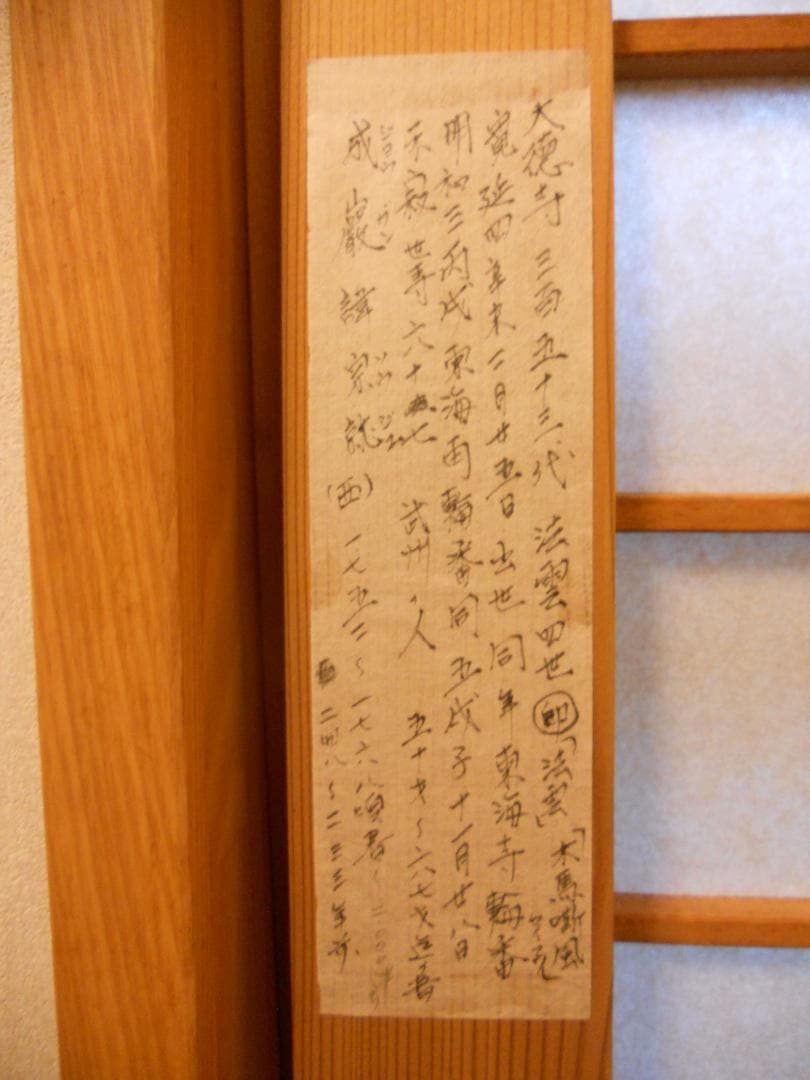 大徳寺 三百五十三代 法雲四世 印「法雲」「木馬嘶風
寛延四年未二月廿五日出世 同年東海寺輪番
明和三丙戌 東海再輪番 同五戊子十一月廿八日
示寂 世寿六十七 武州ノ人 五十才〜六八七才迄書
成巖 諱 宗就(西)一七五二〜一七六八頃書
二四八〜二三三年前